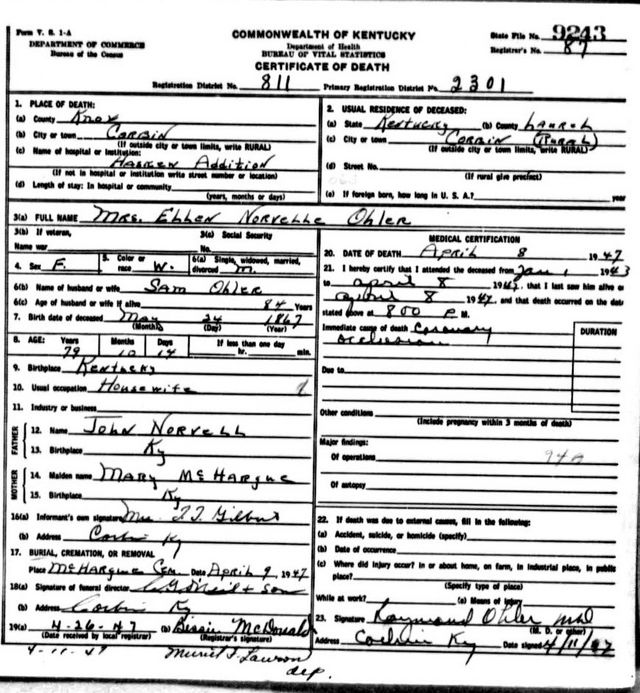 Form V. S. 1-A
DEPARTMENT OF COMMERCE
Bureau of the Census
COMMONWEALTH OF KENTUCKY
Department of Health
BUREAU OF VITAL STATISTICS
CERTIFICATE OF DEATH
State File No. 9243
Registrar's No. 87
Registration District No. 811 Primary Registration District No. 2301
1. PLACE OF DEATH:
(a) County Knox
(b) City or town Corbin
(If outside city or town limits, write RURAL)
(c) Name of hospital or institution:
Addition
(If not in hospital or institution write street number or location)
(d) Length of stay: In hospital or community
(years, months or days)
2. USUAL RESIDENCE OF DECEASED:
(a) State Kentucky (b) County Laurel
(c) City or town Corbin (Rural)
(If outside city or town limits, write RURAL)
(d) Street No.
(If rural give precinct)
(e) If foreign born, how long in U. S. A.? year
3(a) FULL NAME Mrs. Ellen Norvelle Ohler
3(b) If veteran, 3(c) Social Security
Name war No.
4. Sex F. 5. Color or race W. 6(a) Single, widowed, married, divorced M.
6(b) Name of husband or wife Sam Ohler
6(c) Age of husband or wife if alive 84 Years
7. Birth date of deceased May 24 1867
(Month) (Day) (Year)
8. AGE: Years Months Days If less than one day
79 10 14 hr. min.
9. Birthplace Kentucky
10. Usual occupation Housewife
11. Industry or business
FATHER
12. Name John Norvell
13. Birthplace Ky
MOTHER
14. Maiden name Mary McHargue
15. Birthplace Ky
16(a) Informant's own signature Mrs. T.T. Gilbert
(b) Address Corbin Ky
17. BURIAL, CREMATION, OR REMOVAL
Place McHargue Cem. Date April 9, 1947
18(a) Signature of funeral director O'Neil + son
(b) Address Corbin Ky
19(a) 4-26-47 (b) Bissie McDonald
(Date received by local registrar) (Registrar's signature)
4-11-47 Muriel J. Lawson
dep.
MEDICAL CERTIFICATION
20. DATE OF DEATH April 8 1947
21. I hereby certify that I attended the deceased from Jan, 1 1943
to april 8 1947, that I last saw him alive on
april 8 1947, and that death occurred on the date
stated above at 800 P.M.
Immediate cause of death Coronary
occlusion
DURATION
Due to
Other conditions
(Include pregnancy within 3 months of death)
Major findings:
Of operations 94a
Of autopsy
22. If death was due to external causes, fill in the following:
(a) Accident, suicide, or homicide (specify)
(b) Date of occurrence
(c) Where did injury occur? in or about home, on farm, in industrial place, in public
place?
(Specify type of place)
While at work? (e) Means of injury
23. Signature Raymond Ohler md
(M. D. or other)
Address Corbin Ky Date signed 4/11/47